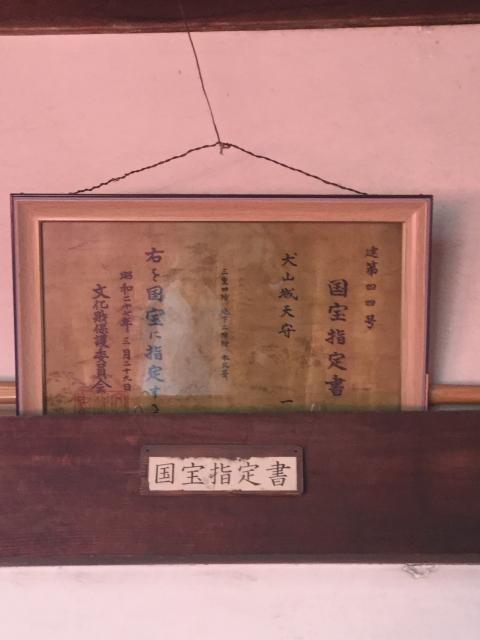 建第四四号
国宝指定書
犬山城天守 一
三重四階、地下二階附、本瓦葺
右を国宝に指定する
昭和二十七年三月二十九日
文化財保護委員会
国宝指定書